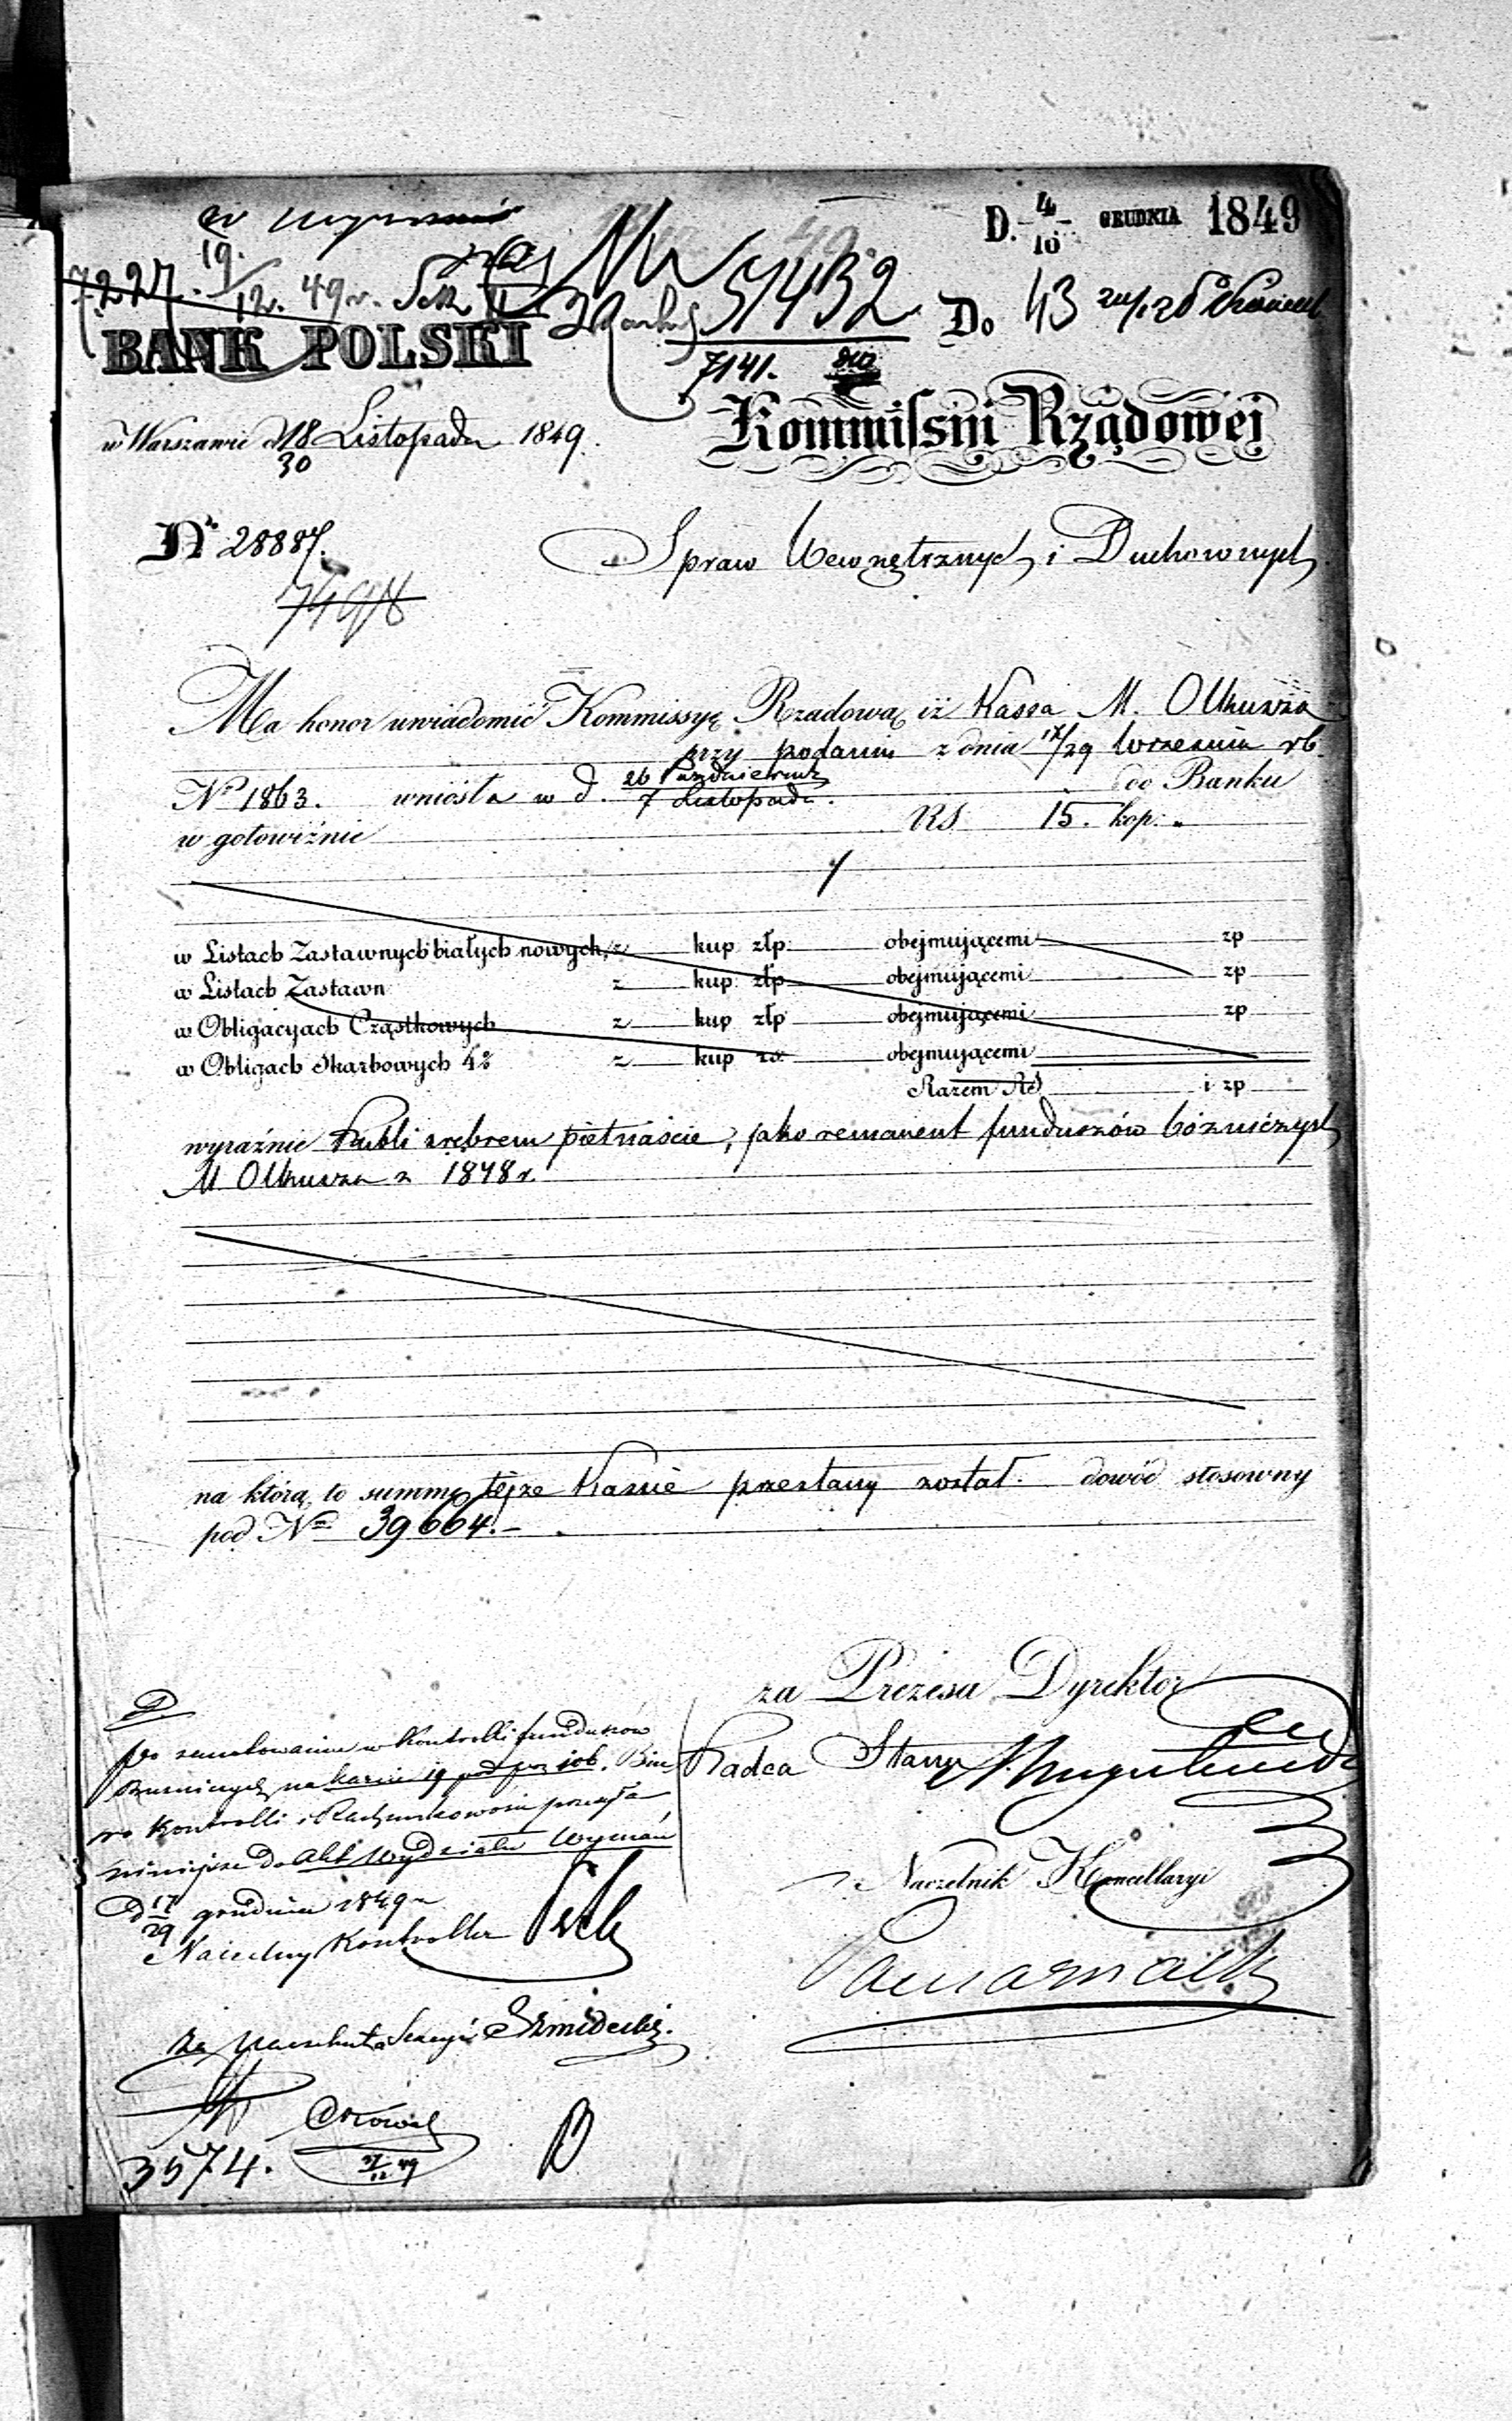 D. 4/16 GRUDNIA 1849
19.
7227. /12. 49 r.
51432
Do 43
BANK POLSKI
7141.
w Warszawie d 18/30 Listopada 1849.
Kommissyi Rządowej
No 28887.
Spraw Wewnętrznych i Duchownych
Ma honor uwiadomić Kommissyę Rządową iż Kassa M. Olkusza
przy podaniu z dnia 17/29 Września rb
No 1863. wniosła w d. 26 Października / 7 Listopada. do Banku
w gotowiźnie RS 15. kop: „
w Listach Zastawnych białych nowych, z kup złp: obejmującemi zp
w Listach Zastawn z kup: złp obejmującemi zp
w Obligacyach Cząstkowych z kup złp obejmującemi zp
w Obligach Skarbowych 4% z kup rs. obejmującemi
Razem RS i zp
wyraźnie Rubli srebrem piętnaście, jako remanent funduszów bóżniczych
M Olkusza z 1848 r.
na którą to summę tejże Kassie przesłany został dowód stosowny
pod No 39664.-
za Prezesa Dyrektor
Radca Stanu
po zanotowaniu w Kontrolli funduszów
Bóżniczych na karcie 19 pod poz 106. Biu
ro Kontrolli i Rachunkowości przesyła
niniejsze do Akt Wydziału Wyznań
d 17/29 grudnia 1849 r
Naczelny Kontroller
Naczelnik Kancellaryi
za Naczelnika Sekcyi
3574.
31/12 49